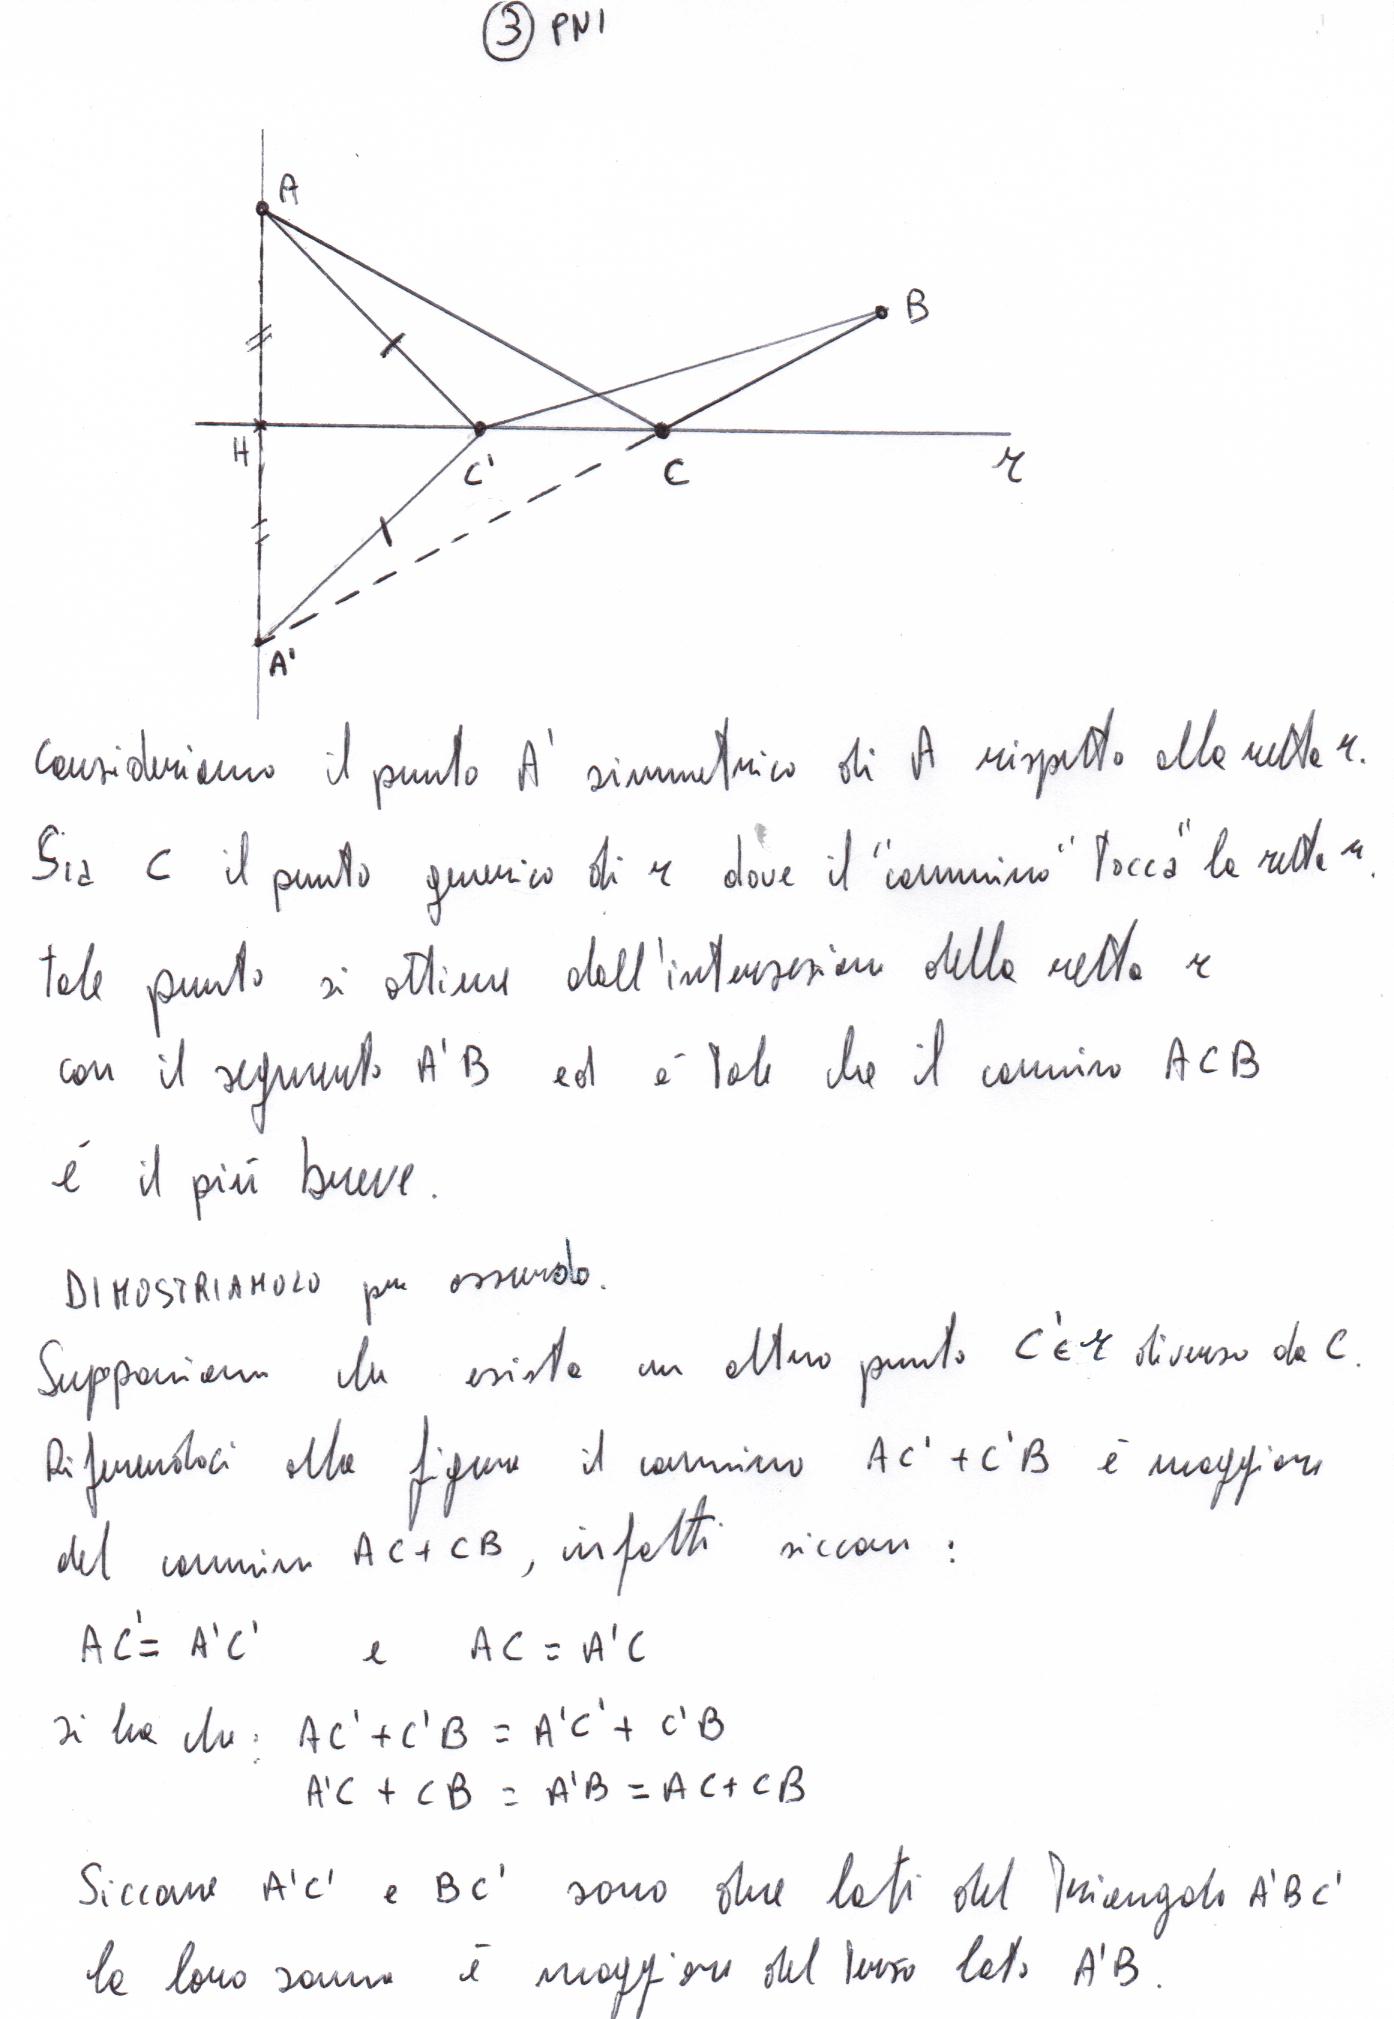 3 PNI
A
B
H
C'
C
r
A'
Consideriamo il punto A' simmetrico di A rispetto alla retta r.
Sia C il punto generico di r dove il "cammino" "tocca" la retta r.
tale punto si ottiene dall'intersezione della retta r
con il segmento A'B ed è tale che il cammino ACB
è il più breve.
DIMOSTRIAMOLO per assurdo.
Supponiamo che esista un altro punto C'∈r diverso da C.
Riferendoci alla figura il cammino AC'+C'B è maggiore
del cammino AC+CB, infatti siccome :
AC'= A'C' e AC = A'C
si ha che: AC'+C'B = A'C'+ C'B
A'C + CB = A'B = AC+CB
Siccome A'C' e BC' sono due lati del Triangolo A'BC'
la loro somma è maggiore del terzo lato A'B.